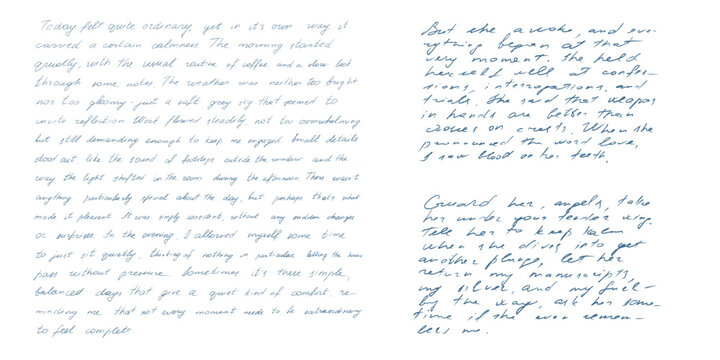 Today felt quite ordinary, yet in it's own way it
carried a certain calmness. The morning started
quietly, with the usual routine of coffee and a slow look
through some notes. The weather was neither too bright
nor too gloomy - just a soft grey sky that seemed to
invite reflection. Work flowed steadily, not too overwhelming
but still demanding enough to keep me engaged. Small details
stood out, like the sound of footsteps outside the window and the
way the light shifted in the room during the afternoon. There wasn't
anything particularly special about the day, but perhaps that's what
made it pleasant. It was simply consistent, without any sudden changes
or surprises. In the evening, I allowed myself some time
to just sit quietly, thinking of nothing in particular letting the hours
pass without pressure. Sometimes it's these simple,
balanced days that give a quiet kind of comfort, re-
minding me that not every moment needs to be extraordinary
to feel complete

But she awoke, and eve-
rything began at that
very moment. She held
herself well at confes-
sions, interrogations, and
trials. She said that weapos
in hands are better than
crosses on crests. When she
pronounced the word love,
I saw blood on her teeth.

Guard her, angels, take
her under your tender wing.
Tell her to keep kalm
when she dives into yet
another plunge, let her
return my manuscripts,
my silver, and my fuel -
by the way, ask her some-
time if she even remem-
bers me.